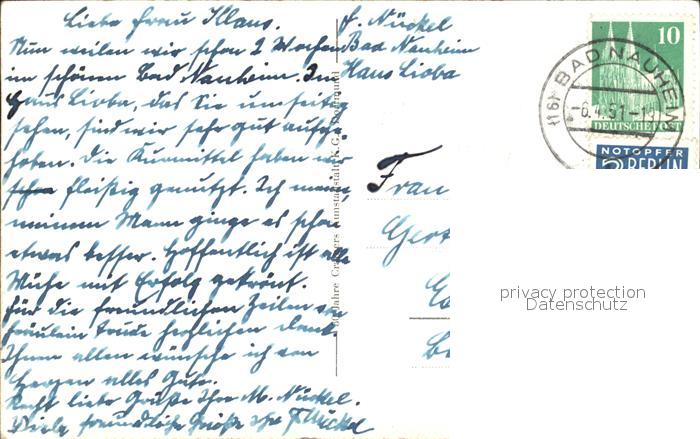 Liebe Frau Klaus.
Nun weilen wir schon 2 Wochen
im schönen Bad Nauheim. Im
Haus Lioba, das Sie umseitig
sehen, sind wir sehr gut aufge-
hoben. Die Kurmittel haben wir
schon fleißig genutzt. Ich meine,
meinem Mann ginge es schon
etwas besser. Hoffentlich ist alle
Mühe mit Erfolg gekrönt.
Für die freundlichen Zeilen von
Fräulein Trude herzlichen Dank.
Ihnen allen wünsche ich von
Herzen alles Gute.
Recht liebe Grüße Ihre M. Nückel.
Viele freundliche Grüße Ihr F Nückel
F. Nückel
Bad Nauheim
Haus Lioba
Jahre Kunstanstalt
10
DEUTSCHE POST
(16) BAD NAUHEIM
-6.4.51-
NOTOPFER
2 BERLIN
Frau
Gert
Be
privacy protection
Datenschutz